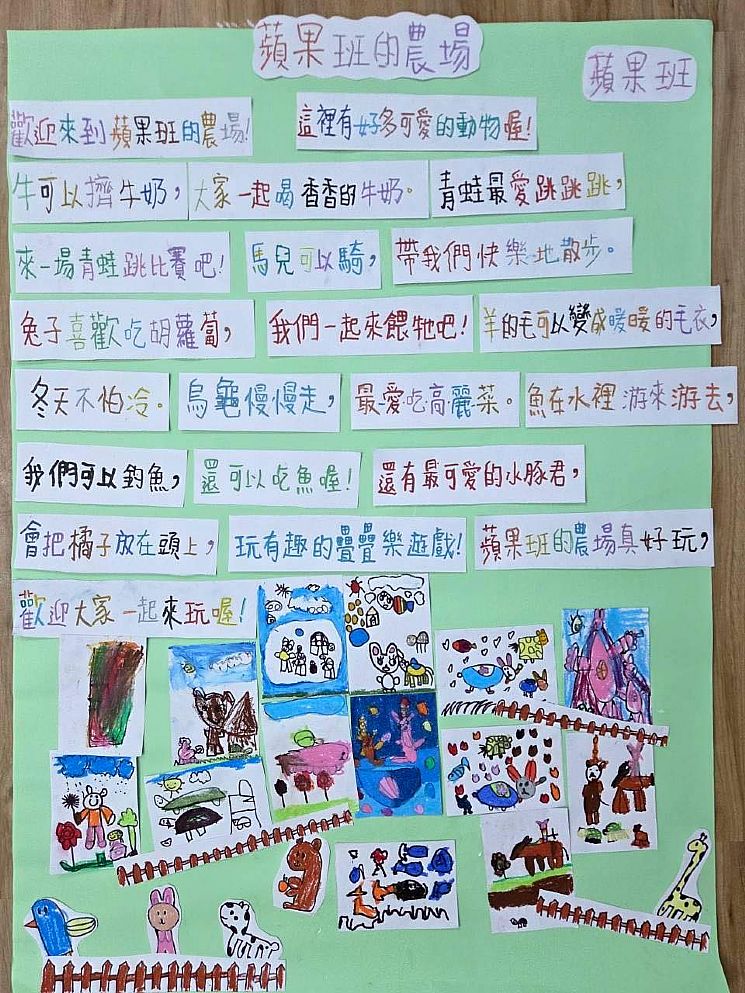 蘋果班的農場
蘋果班
歡迎來到蘋果班的農場! 這裡有好多可愛的動物喔!
牛可以擠牛奶, 大家一起喝香香的牛奶。 青蛙最愛跳跳跳,
來一場青蛙跳比賽吧! 馬兒可以騎, 帶我們快樂地散步。
兔子喜歡吃胡蘿蔔, 我們一起來餵牠吧! 羊的毛可以變成暖暖的毛衣,
冬天不怕冷。 烏龜慢慢走, 最愛吃高麗菜。 魚在水裡游來游去,
我們可以釣魚, 還可以吃魚喔! 還有最可愛的水豚君,
會把橘子放在頭上, 玩有趣的疊疊樂遊戲! 蘋果班的農場真好玩,
歡迎大家一起來玩喔!